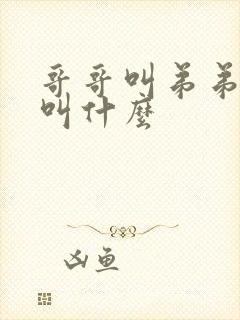 哥哥叫弟弟
叫什麼
凶鱼